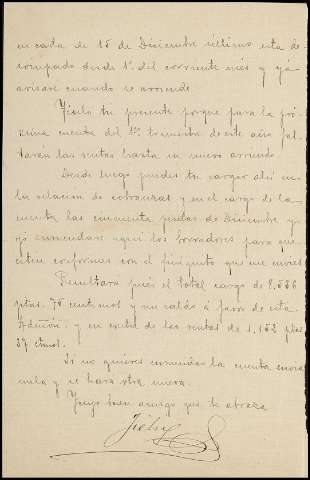 en carta de 15 de Diciembre último está de
ocupado desde 1º del corriente mes y yá
avisaré cuando se arriende
Téalo tu presente porque para la pró
xima cuenta del 1er trimestre de este año fal
tarán las rentas hasta su nuevo arriendo
Desde luego puedes tu cargar ahí en
la relacion de cobranzas y en el cargo de la
cuenta las cincuenta pesetas de Diciembre y
yó enmendaré aqui los borradores para que
esten conformes con el finiquito que me envies
Resultará pues el total cargo de 2.886
ptas. 75 centimos y un saldo á favor de esta
Admón. y en contra de las rentas de 1.152 ptas
37 ctmos.
Si no quieres enmendar la cuenta envia
mela y se hará otra nueva.
Tuyo buen amigo que te abraza
Felix